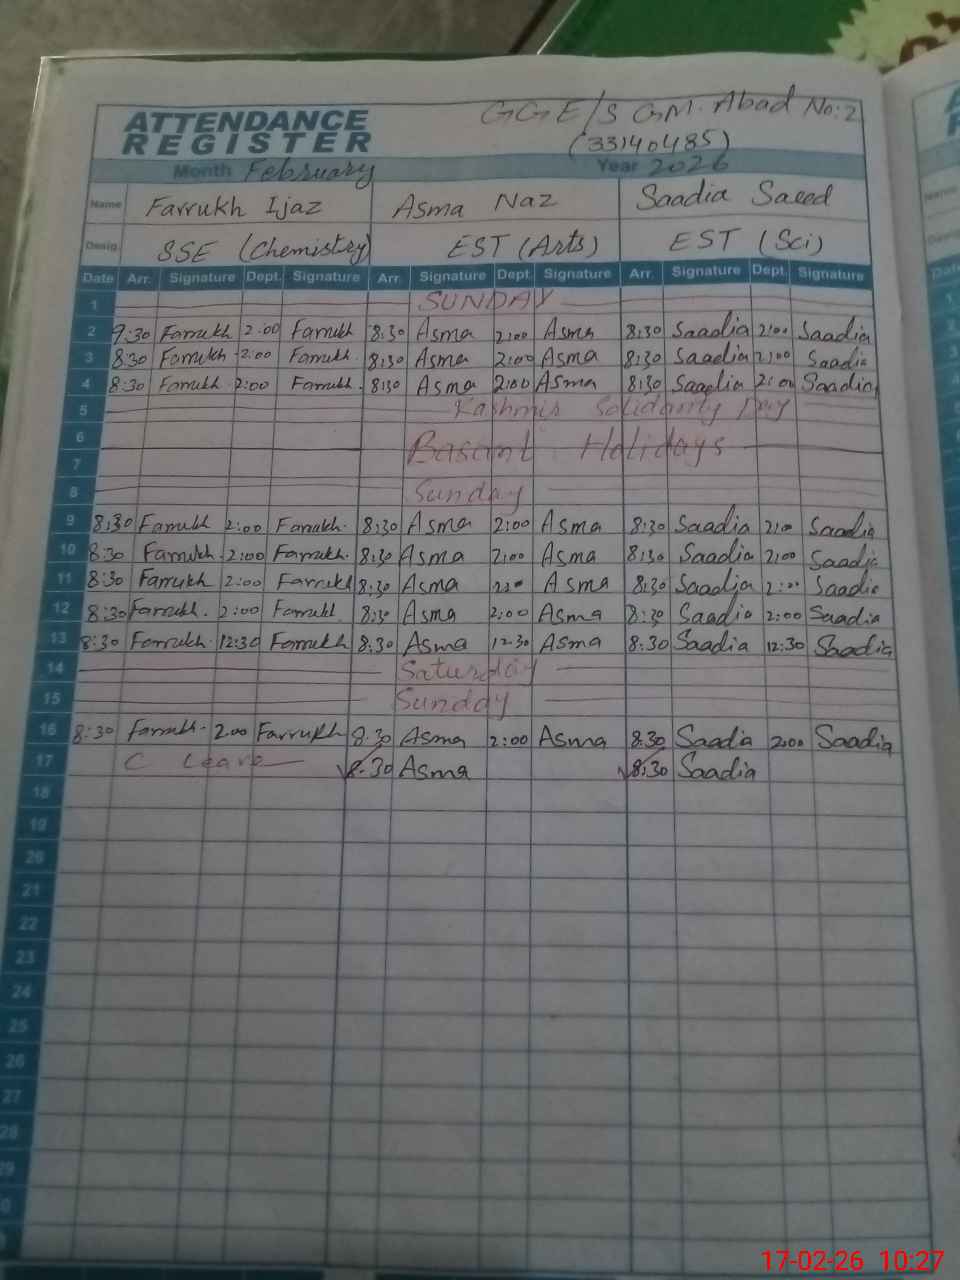 GGE/S GM. Abad No:2
ATTENDANCE
REGISTER
(33140485)
Month February Year 2026
Name Farrukh Ijaz Asma Naz Saadia Saeed
Desig. SSE (Chemistry) EST (Arts) EST (Sci)
Date Arr. Signature Dept. Signature Arr. Signature Dept. Signature Arr. Signature Dept. Signature
1 SUNDAY
2 9:30 Farrukh 2:00 Farrukh 8:30 Asma 2:00 Asma 8:30 Saadia 2:00 Saadia
3 8:30 Farrukh 2:00 Farrukh. 8:30 Asma 2:00 Asma 8:30 Saadia 2:00 Saadia
4 8:30 Farrukh. 2:00 Farrukh. 8:30 Asma 2:00 Asma 8:30 Saadia 2:00 Saadia
5 Kashmir Solidarity Day
6 Basant Holidays
7
8 Sunday
9 8:30 Farrukh 2:00 Farrukh. 8:30 Asma 2:00 Asma 8:30 Saadia 2:00 Saadia
10 8:30 Farrukh. 2:00 Farrukh. 8:30 Asma 2:00 Asma 8:30 Saadia 2:00 Saadia
11 8:30 Farrukh 2:00 Farrukh 8:30 Asma 2:00 Asma 8:30 Saadia 2:00 Saadia
12 8:30 Farrukh. 2:00 Farrukh 8:30 Asma 2:00 Asma 8:30 Saadia 2:00 Saadia
13 8:30 Farrukh. 12:30 Farrukh 8:30 Asma 12.30 Asma 8:30 Saadia 12:30 Saadia
14 Saturday
15 Sunday
16 8:30 Farrukh. 2:00 Farrukh 8:30 Asma 2:00 Asma 8:30 Saadia 2:00 Saadia
17 C Leave 8:30 Asma 8:30 Saadia
18
19
20
21
22
23
24
25
26
27
28
29
17-02-26 10:27